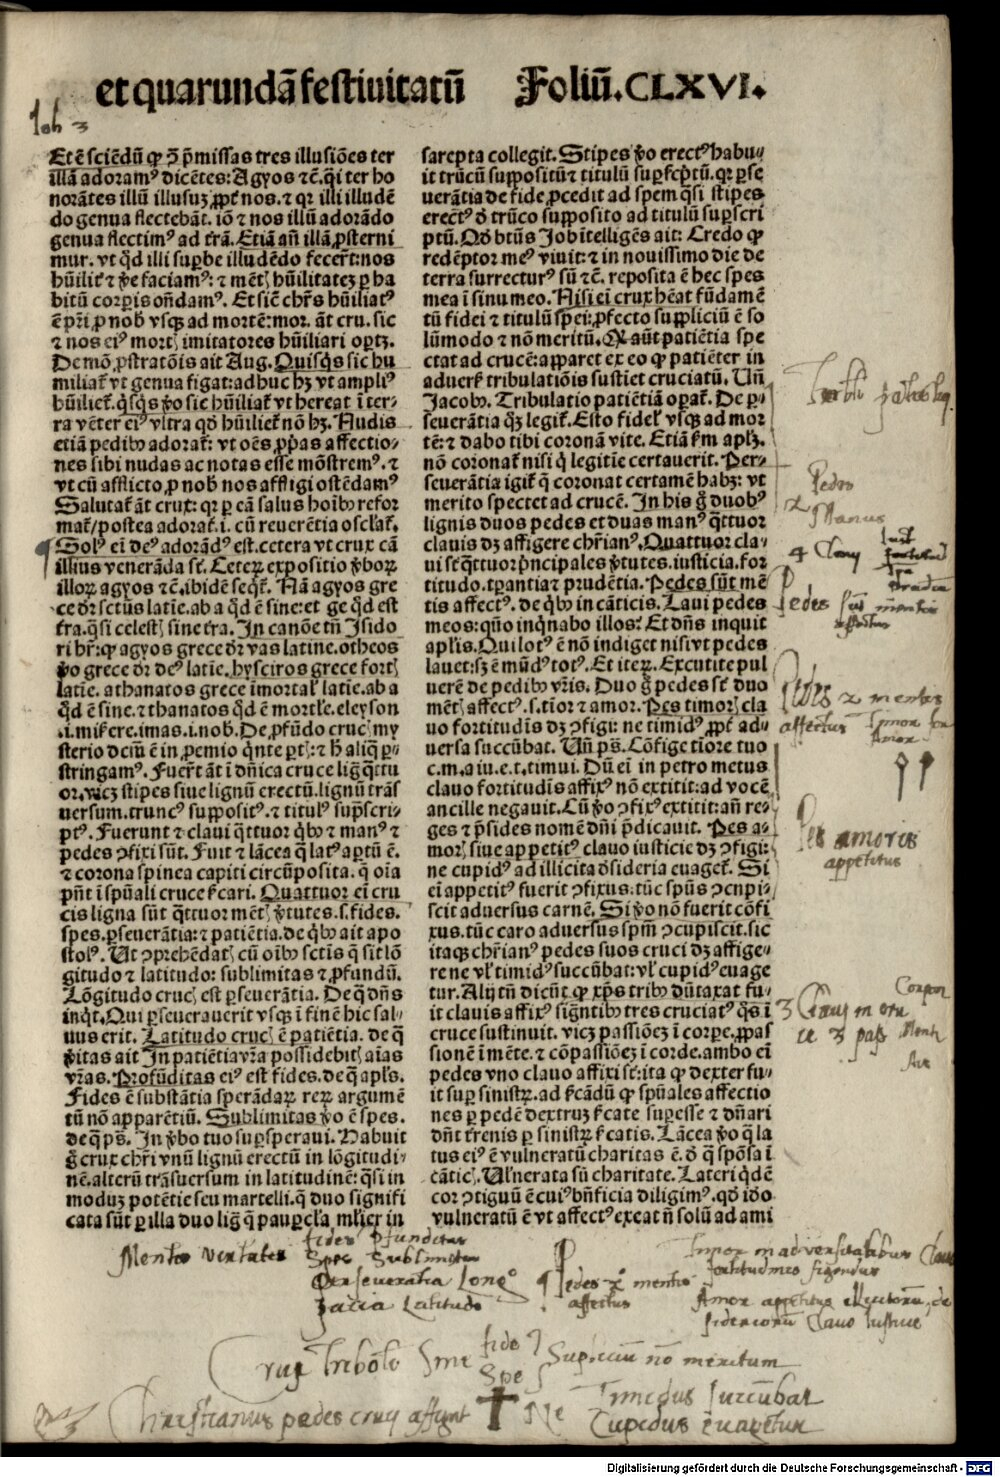 et quarundā festiuitatū Foliū.CLXVI.
Et ē sciēdū ꝙ p̄missas tres illusiōes ter
illā adoramꝰ dicētes: Agyos ⁊c̄. q̇i ter ho
norātes illū illusuꝫ ꝓpt̄ nos. ⁊ qꝛ illi illudē
do genua flectebāt. iō ⁊ nos illū adorādo
genua flectimꝰ ad t̄rā. Etiā añ illā ꝓsterni
mur. vt q̇d illi suꝑbe illudēdo fecer̄t: nos
bitū corꝑis oñdamꝰ. Et sic̄ chr̄s hūiliatꝰ
ē p̄ri ꝓ nob̄ vsqꝫ ad mortē: mor. āt cru. sic
De mō ꝓstratōis ait Aug. Quisq̇s sic hu
miliat̄ vt genua figat: adhuc hꝫ vt ampliꝰ
etiā pedibꝰ adorat̄: vt oēs ꝓp̄as affectio⸗
nes sibi nudas ac notas esse mōstremꝰ. ⁊
vt cū afflicto ꝓ nob̄ nos affligi ostēdamꝰ
Salutat̄ āt crux: qꝛ ꝑ eā salus hoībꝰ refor
mat̄/ postea adorat̄. i. cū reuerētia osclat̄.
Solꝰ ei deꝰ adorādꝰ est. cetera vt crux cā
illius venerāda st̄. Ceteꝝ expositio ꝟboꝝ
illoꝝ agyos ⁊c̄. ibidē seq̄t̄. Nā agyos gre
ce dr̄ sctūs latīe. ab a qd̄ ē sine: et ge qd̄ est
t̄ra. q̄si celestꝭ sine t̄ra. In canōe tn̄ Isido
ri hr̄: ꝙ agyos grece dr̄ vas latine. otheos
ꝟo grece dr̄ deꝰ latīe. hysciros grece fortꝭ
latīe. athanatos grece īmortal̄ latīe. ab a
qd̄ ē sine. ⁊ thanatos qd̄ ē mortl̄e. eleyson
.i. mißere. imas. i. nob̄. De ꝓfūdo crucꝭ my
stringamꝰ. Fuer̄t āt ī dn̄ica cruce liḡ q̄ttu
or. vicꝫ stipes siue lignū erectū. lignū trās
versum. truncꝰ suppositꝰ. ⁊ titulꝰ sup̄scri⸗
ptꝰ. Fuerunt ⁊ claui q̄ttuor q̇bꝰ ⁊ manꝰ ⁊
pedes ꝯfixi sūt. Fuit ⁊ lācea q̄ latꝰ aꝑtū ē.
⁊ corona spinea capiti circūposita. q̄ oīa
pn̄t ī spūali cruce ẜcari. Quattuor ei cru
cis ligna sūt q̄ttuor mētꝭ ꝟtutes. s. fides.
spes. ꝑseuerātia: ⁊ patiētia. de q̇bꝰ ait apo
stolꝰ. Ut ꝯprehēdatꝭ cū oībꝰ sctīs q̄ sit lō
gitudo ⁊ latitudo: sublimitas ⁊ ꝓfundū.
Lōgitudo crucꝭ est ꝑseuerātia. De q̄ dn̄s
inq̇t. Qui ꝑseuerauerit vsqꝫ ī finē hic sal⸗
uus erit. Latitudo crucꝭ ē patiētia. de q̄
ꝟitas ait In patiētia vr̄a possidebitꝭ aīas
vr̄as. Profūditas eiꝰ est fides. de q̄ apl̄s.
Fides ē substātia sperādaꝝ reꝝ argumē
tū nō apparētiū. Sublimitas ꝟo ē spes.
de q̄ ps̄. In ꝟbo tuo suꝑsperaui. Habuit
g̊ crux chr̄i vnū lignū erectū in lōgitudi⸗
nē. alterū trāsuersum in latitudinē: q̄si in
moduꝫ potētie seu martelli. q̄ duo signifi
cata sūt ꝑ illa duo liḡ q̄ pauꝑcl̄a ml̄ier in
sarepta collegit. Stipes ꝟo erectꝰ habu⸗
it trūcū suppositū ⁊ titulū suꝑsc̄ptū. qꝛ ꝑse
uerātia de fide ꝓcedit ad spem q̄si stipes
erectꝰ d̄ trūco supposito ad titulū suꝑscri
ptū. Qd̄ btūs Job ītelligēs ait: Credo ꝙ
redēptor meꝰ viuit: ⁊ in nouissimo die de
terra surrecturꝰ sū ⁊c̄. reposita ē hec spes
mea ī sinu meo. Nisi ei crux hēat fūdamē
tū fidei ⁊ titulū spei: ꝓfecto suppliciū ē so
lūmodo ⁊ nō meritū. Qꝙ aūt patiētia spe
ctat ad crucē: apparet ex eo ꝙ patiēter in
aduerẜ tribulatiōis sustīet cruciatū. Uñ
Jacobꝰ. Tribulatio patiētiā oꝑat̄. De ꝑ⸗
seuerātia q̄ꝫ legit̄. Esto fidel̄ vsqꝫ ad mor
tē: ⁊ dabo tibi coronā vite. Etiā ẜm aplꝫ.
nō coronat̄ nisi q̇ legitīe certauerit. Per⸗
seuerātia igit̄ q̄ coronat certamē habꝫ: vt
merito spectet ad crucē. In his g̊ duobꝰ
lignis duos pedes et duas manꝰ q̄ttuor
clauis dꝫ affigere chr̄ianꝰ. Quattuor cla⸗
ui st̄ q̄ttuor p̄ncipales ꝟtutes. iusticia. for
titudo. tꝑantia et prudētia. Pedes sūt mē
tis affectꝰ. de q̇bꝰ in cāticis. Laui pedes
meos: quō inq̇nabo illos? Et dn̄s inquit
apl̄is. Qui lotꝰ ē nō indiget nisi vt pedes
lauet: sꝫ ē mūdꝰ totꝰ. Et iteꝝ. Excutite pul
uerē de pedibꝰ vr̄is. Duo g̊ pedes st̄ duo
mētꝭ affectꝰ. s. tīor ⁊ amor. Pes timorꝭ cla
uo fortitudīs dꝫ ꝯfigi: ne timidꝰ ꝓpt̄ ad⸗
uersa succūbat. Uñ ps̄. Cōfige tīore tuo
c.m.a iu.e.t. timui. Dū ei in petro metus
clauo fortitudīs affixꝰ nō extitit: ad vocē
ancille negauit. Cū ꝟo ꝯfixꝰ extitit: añ re⸗
ges ⁊ p̄sides nomē dn̄i p̄dicauit. Pes a⸗
morꝭ siue appetitꝰ clauo iusticie dꝫ ꝯfigi:
ne cupidꝰ ad illicita d̄sideria euaget̄. Si
ei appetitꝰ fuerit ꝯfixus: tūc spūs ꝯcupi⸗
scit aduersus carnē. Si ꝟo nō fuerit cōfi
xus. tūc caro aduersus spm̄ ꝯcupiscit. sic
itaqꝫ chr̄ianꝰ pedes suos cruci dꝫ affige⸗
re ne vl̄ timidꝰ succūbat: vl̄ cupidꝰ euage
tur. Alij tn̄ dicūt ꝙ xp̄s tribꝰ dūtaxat fu⸗
it clauis affixꝰ sigñtibꝰ tres cruciatꝰ q̄s ī
cruce sustinuit. vicꝫ passiōeꝫ ī corꝑe. ꝓpas
sionē ī mēte. ⁊ cōpassiōeꝫ ī corde. ambo ei
pedes vno clauo affixi st̄: ita ꝙ dexter fu⸗
it suꝑ sinistꝝ. ad ẜcādū ꝙ spūales affectio
nes ꝑ pedē dextruꝫ ẜcate suꝑesse ⁊ dn̄ari
dn̄t t̄renis ꝑ sinistꝝ ẜcatis. Lācea ꝟo q̄ la
tus eiꝰ ē vulneratū charitas ē. d̄ q̄ spōsa ī
cātic̄. Vulnerata sū charitate. Lateri qd̄ ē
cor ꝯtiguū ē cuiꝰ bn̄ficia diligimꝰ. qd̄ iō
vulneratū ē vt affectꝰ exeat n̄ solū ad ami
Pedes
Manus
4 Clauj
Pedes sūt mentis
affectus
Pedes ⁊ mentis
affectus Timor
Amor
Pes amoris
appetitus
Mentis virtutes
fides ꝓfunditas
Spes Sublimitas
Perseuerātia Longᵒ
Latitudo
Pedes mentis
affectus
Timor in aduersitatibus
fortitudinis figendus
Amor appetitus
Clauo Iustitie
Crux
fide
Spe
Supliciū nō meritum
Christianus pedes cruci affigat
Ne
Timidus succūbat
Cupidus euagetur
Digitalisierung gefördert durch die Deutsche Forschungsgemeinschaft - DFG